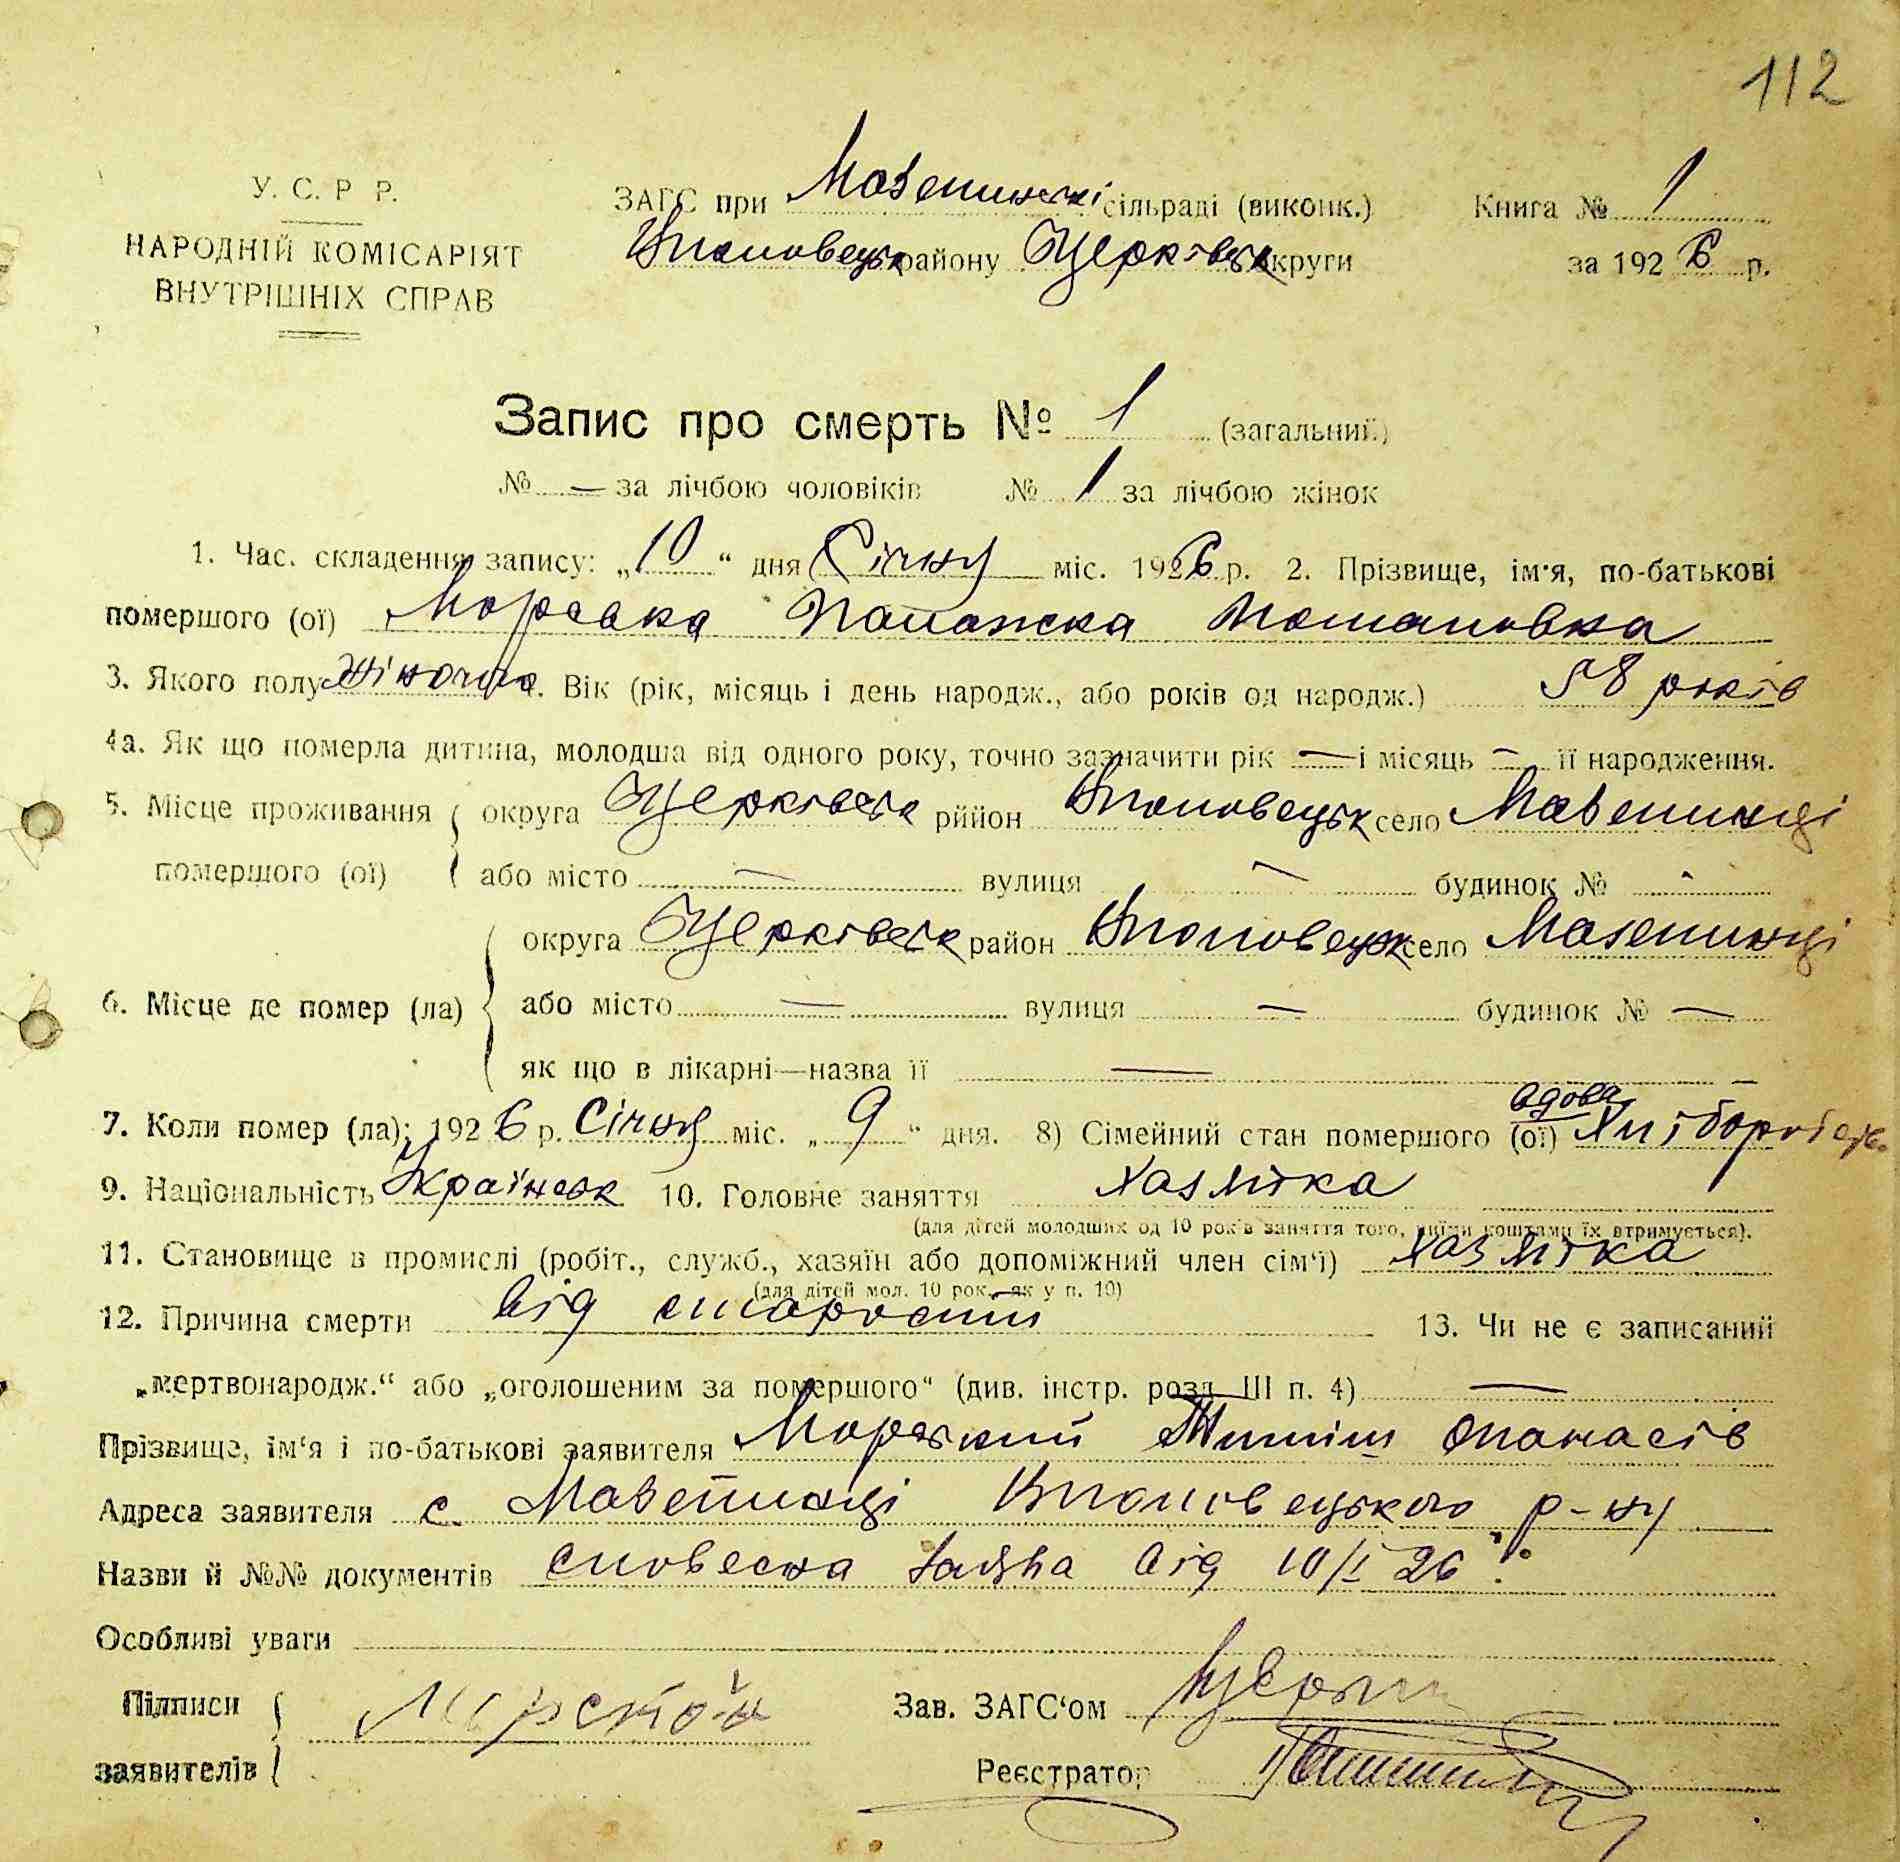 112
У. С. Р Р.
НАРОДНІЙ КОМІСАРІЯТ
ВНУТРІШНІХ СПРАВ
ЗАГС при Мазепинській сільраді (виконк.) Книга № 1
району Церківськ округи за 1926 р.
Запис про смерть № 1 (загальний)
№ — за лічбою чоловіків № 1 за лічбою жінок
1. Час. складення запису: „10“ дня Січня міс. 1926 р. 2. Прізвище, ім'я, по-батькові
помершого (ої) Морська Палажка Потаповна
3. Якого полу жіночого. Вік (рік, місяць і день народж., або років од народж.) 58 років
4а. Як що померла дитина, молодша від одного року, точно зазначити рік — і місяць — її народження.
5. Місце проживання помершого (ої) { округа Церківськ рййон село Мазепинці
або місто — вулиця — будинок № -
6. Місце де помер (ла) { округа Церківськ район село Мазепинці
або місто — вулиця — будинок № —
як що в лікарні—назва її —
7. Коли помер (ла); 1926 р. Січня міс. „9“ дня. 8) Сімейний стан помершого (ої) вдова Хлібороб
9. Національність Українськ 10. Головне заняття Хазяйка
(для дітей молодших од 10 років заняття того, чиїми коштами їх втримується).
11. Становище в промислі (робіт., служб., хазяїн або допоміжний член сім'ї) Хазяйка
(для дітей мол. 10 рок. як у п. 10)
12. Причина смерти від старости 13. Чи не є записаний
„мертвонародж.“ або „оголошеним за помершого“ (див. інстр. розд III п. 4) —
Прізвище, ім'я і по-батькові заявителя Морський Тиміш Опанасів
Адреса заявителя с. Мазепинці р-ну
Назви й №№ документів словесна заява від 10/I 26
Особливі уваги
Підписи заявителів { Морской
Зав. ЗАГС'ом
Реєстратор